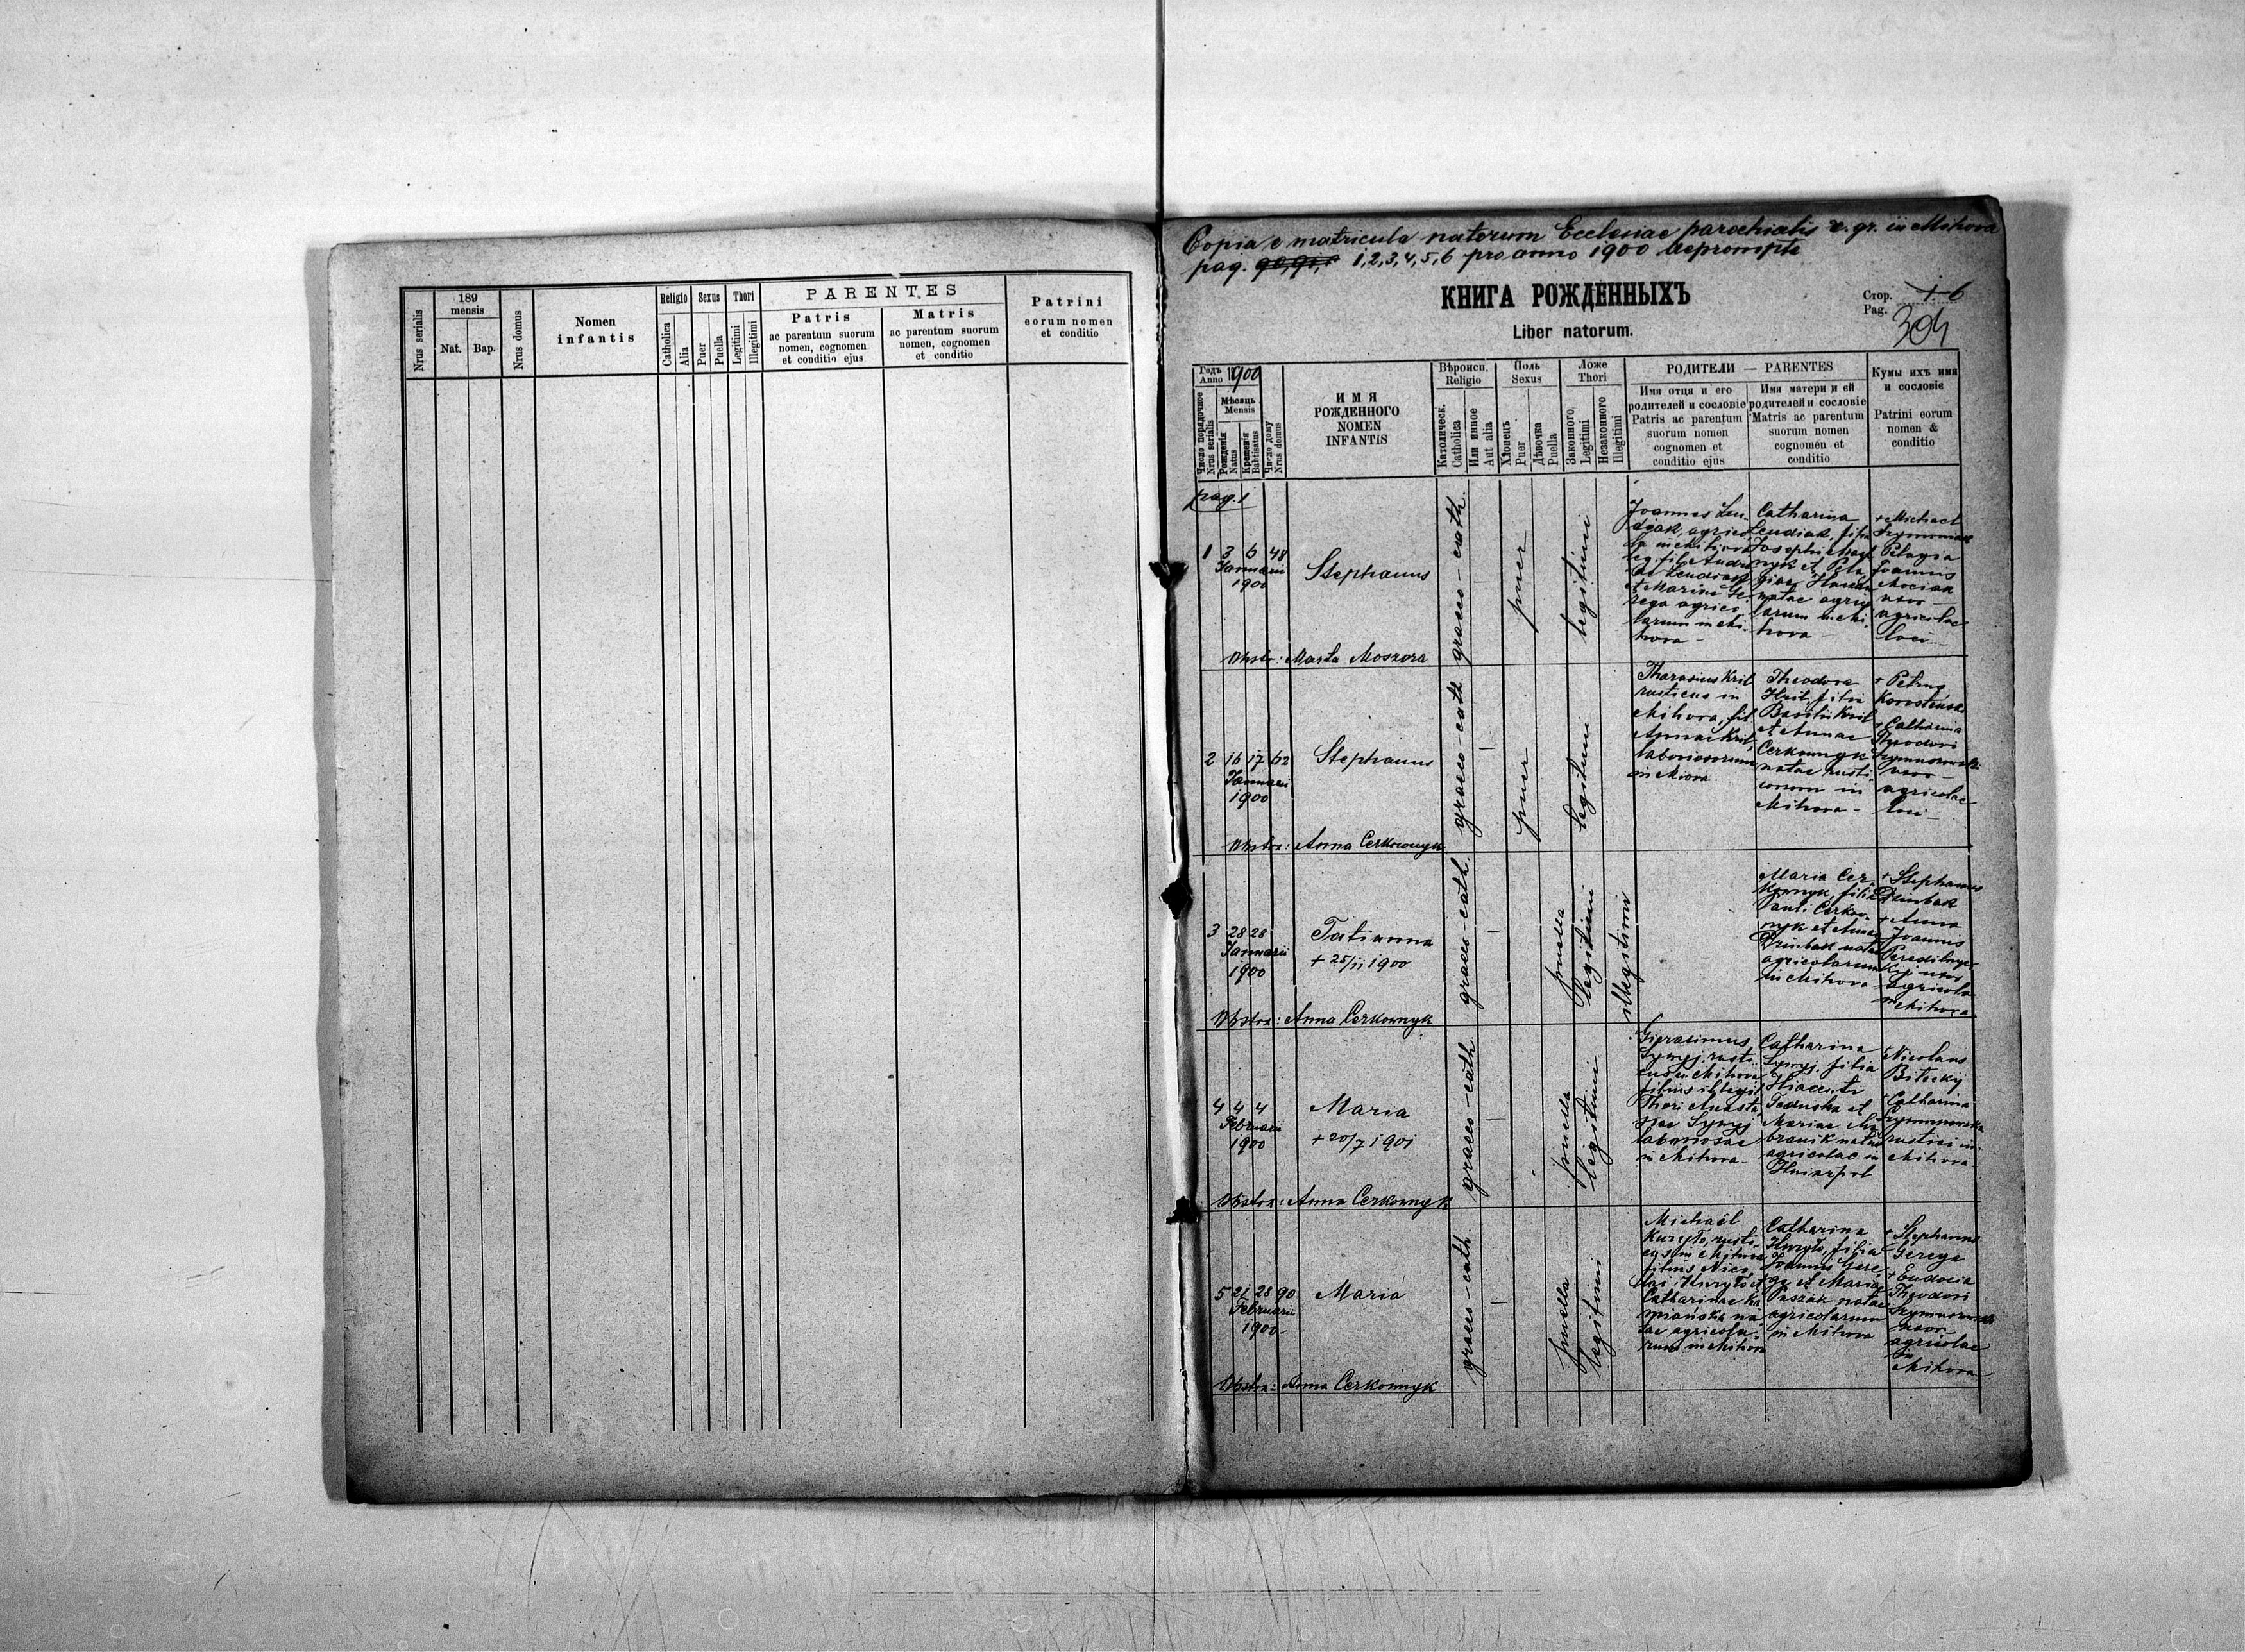 Nrus serialis
189
mensis
Nat.
Bap.
Nrus domus
Nomen
infantis
Religio
Catholica
Alia
Sexus
Puer
Puella
Thori
Legitimi
Illegitimi
PARENTES
Patris
ac parentum suorum
nomen, cognomen
et conditio ejus
Matris
ac parentum suorum
nomen, cognomen
et conditio
Patrini
eorum nomen
et conditio
Copia e matricula natorum Ecclesiae parochialis r. gr. in Mihova
pag. 1, 2, 3, 4, 5, 6 pro anno 1900 deprompta
КНИГА РОЖДЕННЫХЪ
Liber natorum.
Стор.
Pag.
6
304
Годъ
Anno 1900
Число порядочное
Nrus serialis
Мѣсяць
Mensis
Рожденія
Natus
Крещенія
Babtisatus
Число дому
Nrus domus
ИМЯ
РОЖДЕННОГО
NOMEN
INFANTIS
Вѣроисп.
Religio
Католическ.
Catholica
Или инное
Aut alia
Полъ
Sexus
Хлопецъ
Puer
Дѣвочка
Puella
Ложе
Thori
Законного
Legitimi
Незаконного
Illegitimi
РОДИТЕЛИ — PARENTES
Имя отца и его
родителей и сословіе
Patris ac parentum
suorum nomen
cognomen et
conditio ejus
Имя матери и ей
родителей и сословіе
Matris ac parentum
suorum nomen
cognomen et
conditio
Кумы ихъ имя
и сословіе
Patrini eorum
nomen &
conditio
pag. 1
1 3 6 48
Januarii
1900
Stephanus
graeco-cath.
puer
legitimi
Joannes
Catharina
Michael
Pelagia
Joannis
uxor
agricolae
loci
Obstetr: Marta Moszora
2 16 17 62
Januarii
1900
Stephanus
graeco-cath
puer
legitimi
Tharasius Kril
rusticus in
Mihova, fil
Annae Kril
laboriosorum
Theodora
Kril, filia
Basilii Kril
et Annae
Cerkownyk
natae rusti
corum in
Mihova
+ Petrus
+ Catharina
Theodori
uxor
agricolae
loci
Obstetr: Anna Cerkownyk
3 28 28
Januarii
1900
Tatianna
+ 25/II 1900
graeco-cath.
puella
legitimi
illegitimi
Maria Cer
kownyk, filia
Pauli Cerkow
nyk et Annae
Dziubak natae
agricolarum
in Mihova
+ Stephanus
Dziubak
+ Anna
Joannis
uxor
agricola
in Mihova
Obstetr: Anna Cerkownyk
4 4 4
Februarii
1900
Maria
+ 20/7 1901
graeco-cath
puella
legitimi
Gierasimus
rusti
cus in Mihova
filius illegit
Thori Anasta
siae
laboriosae
in Mihova
Catharina
filia
Hiacenti
Mariae
natae
agricolae in
+ Nicolaus
Catharina
rustici in
Mihova
Obstetr: Anna Cerkownyk
5 21 28 90
Februarii
1900
Maria
graeco-cath
puella
legitimi
Michaël
rusti
cus in Mihova
filius Nico
lai
Catharinae
na
tae agricola
rum in Mihova
Catharina
filia
Joannis Gere
ga et Mariae
Paszak natae
agricolarum
in Mihova
+ Stephanus
Gerega
+ Eudocia
Theodori
uxor
agricolae
in
Mihova
Obstetr: Anna Cerkownyk